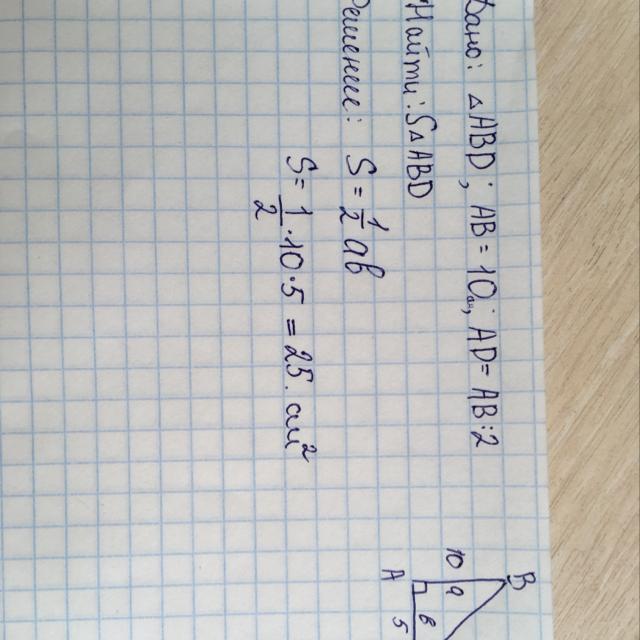 Дано: △ABD; AB = 10см; AD = AB:2
Найти: S△ABD
Решение: S = 1/2 ab
S = 1/2 · 10 · 5 = 25 см²
B
10 a
A в
5